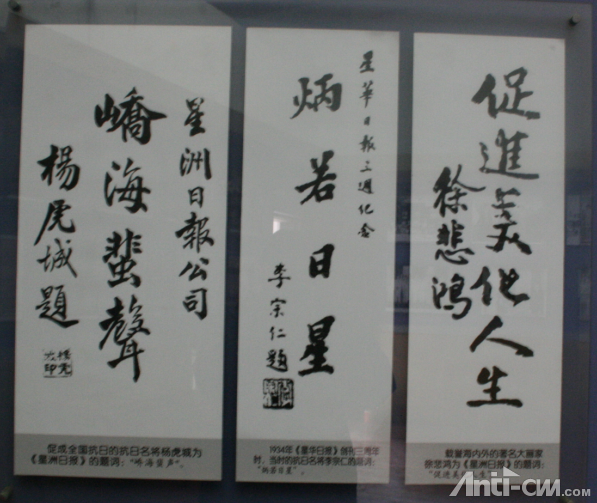 星洲日報公司
嶠海蜚聲
楊虎城題
促成全国抗日的抗日名将杨虎城为
《星洲日报》的题词："峤海蜚声"。
星華日報三週纪念
炳若日星
李宗仁題
1934年《星华日报》创刊三周年
时，当时的抗日名将李宗仁的题词：
"炳若日星"。
促進美化人生
徐悲鴻
载誉海内外的著名大画家
徐悲鸿为《星洲日报》的题词：